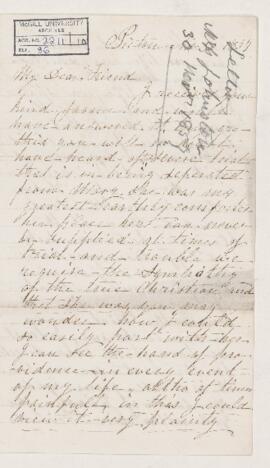 McGILL UNIVERSITY
ARCHIVES
ACC. NO. 2211 10
REF. 36
Letter
30
Pictou
My Dear Friend
I received your
kind favour and would
have answered it
this you will
have heard of severe trial
that is in being separated
from Mary she was my
greatest earthly comforter
her place here can never
be supplied at times of
trial and trouble we
require the sympathy
of the true Christian and
that she was you may
wonder how I could
so easily part with her
I can see the hand of pro
vidence in every event
of my life altho of times
painful in this I could
view it very plainly